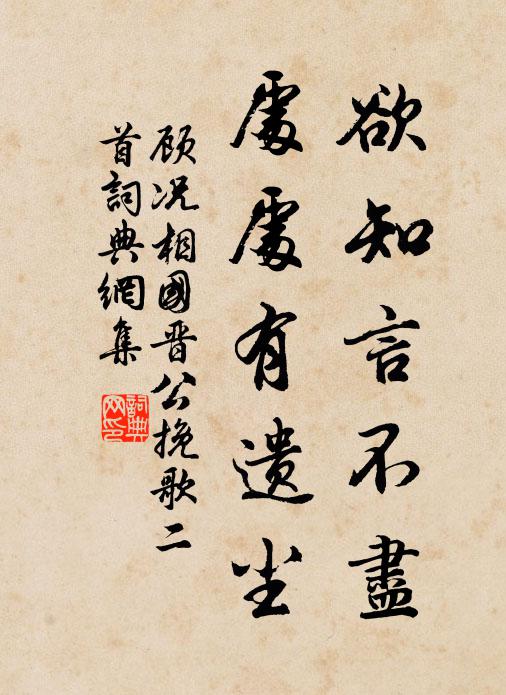 欲知言不盡
處處有遺尘
顾况相國晋公挽歌二
首詞典網集
詞典网印